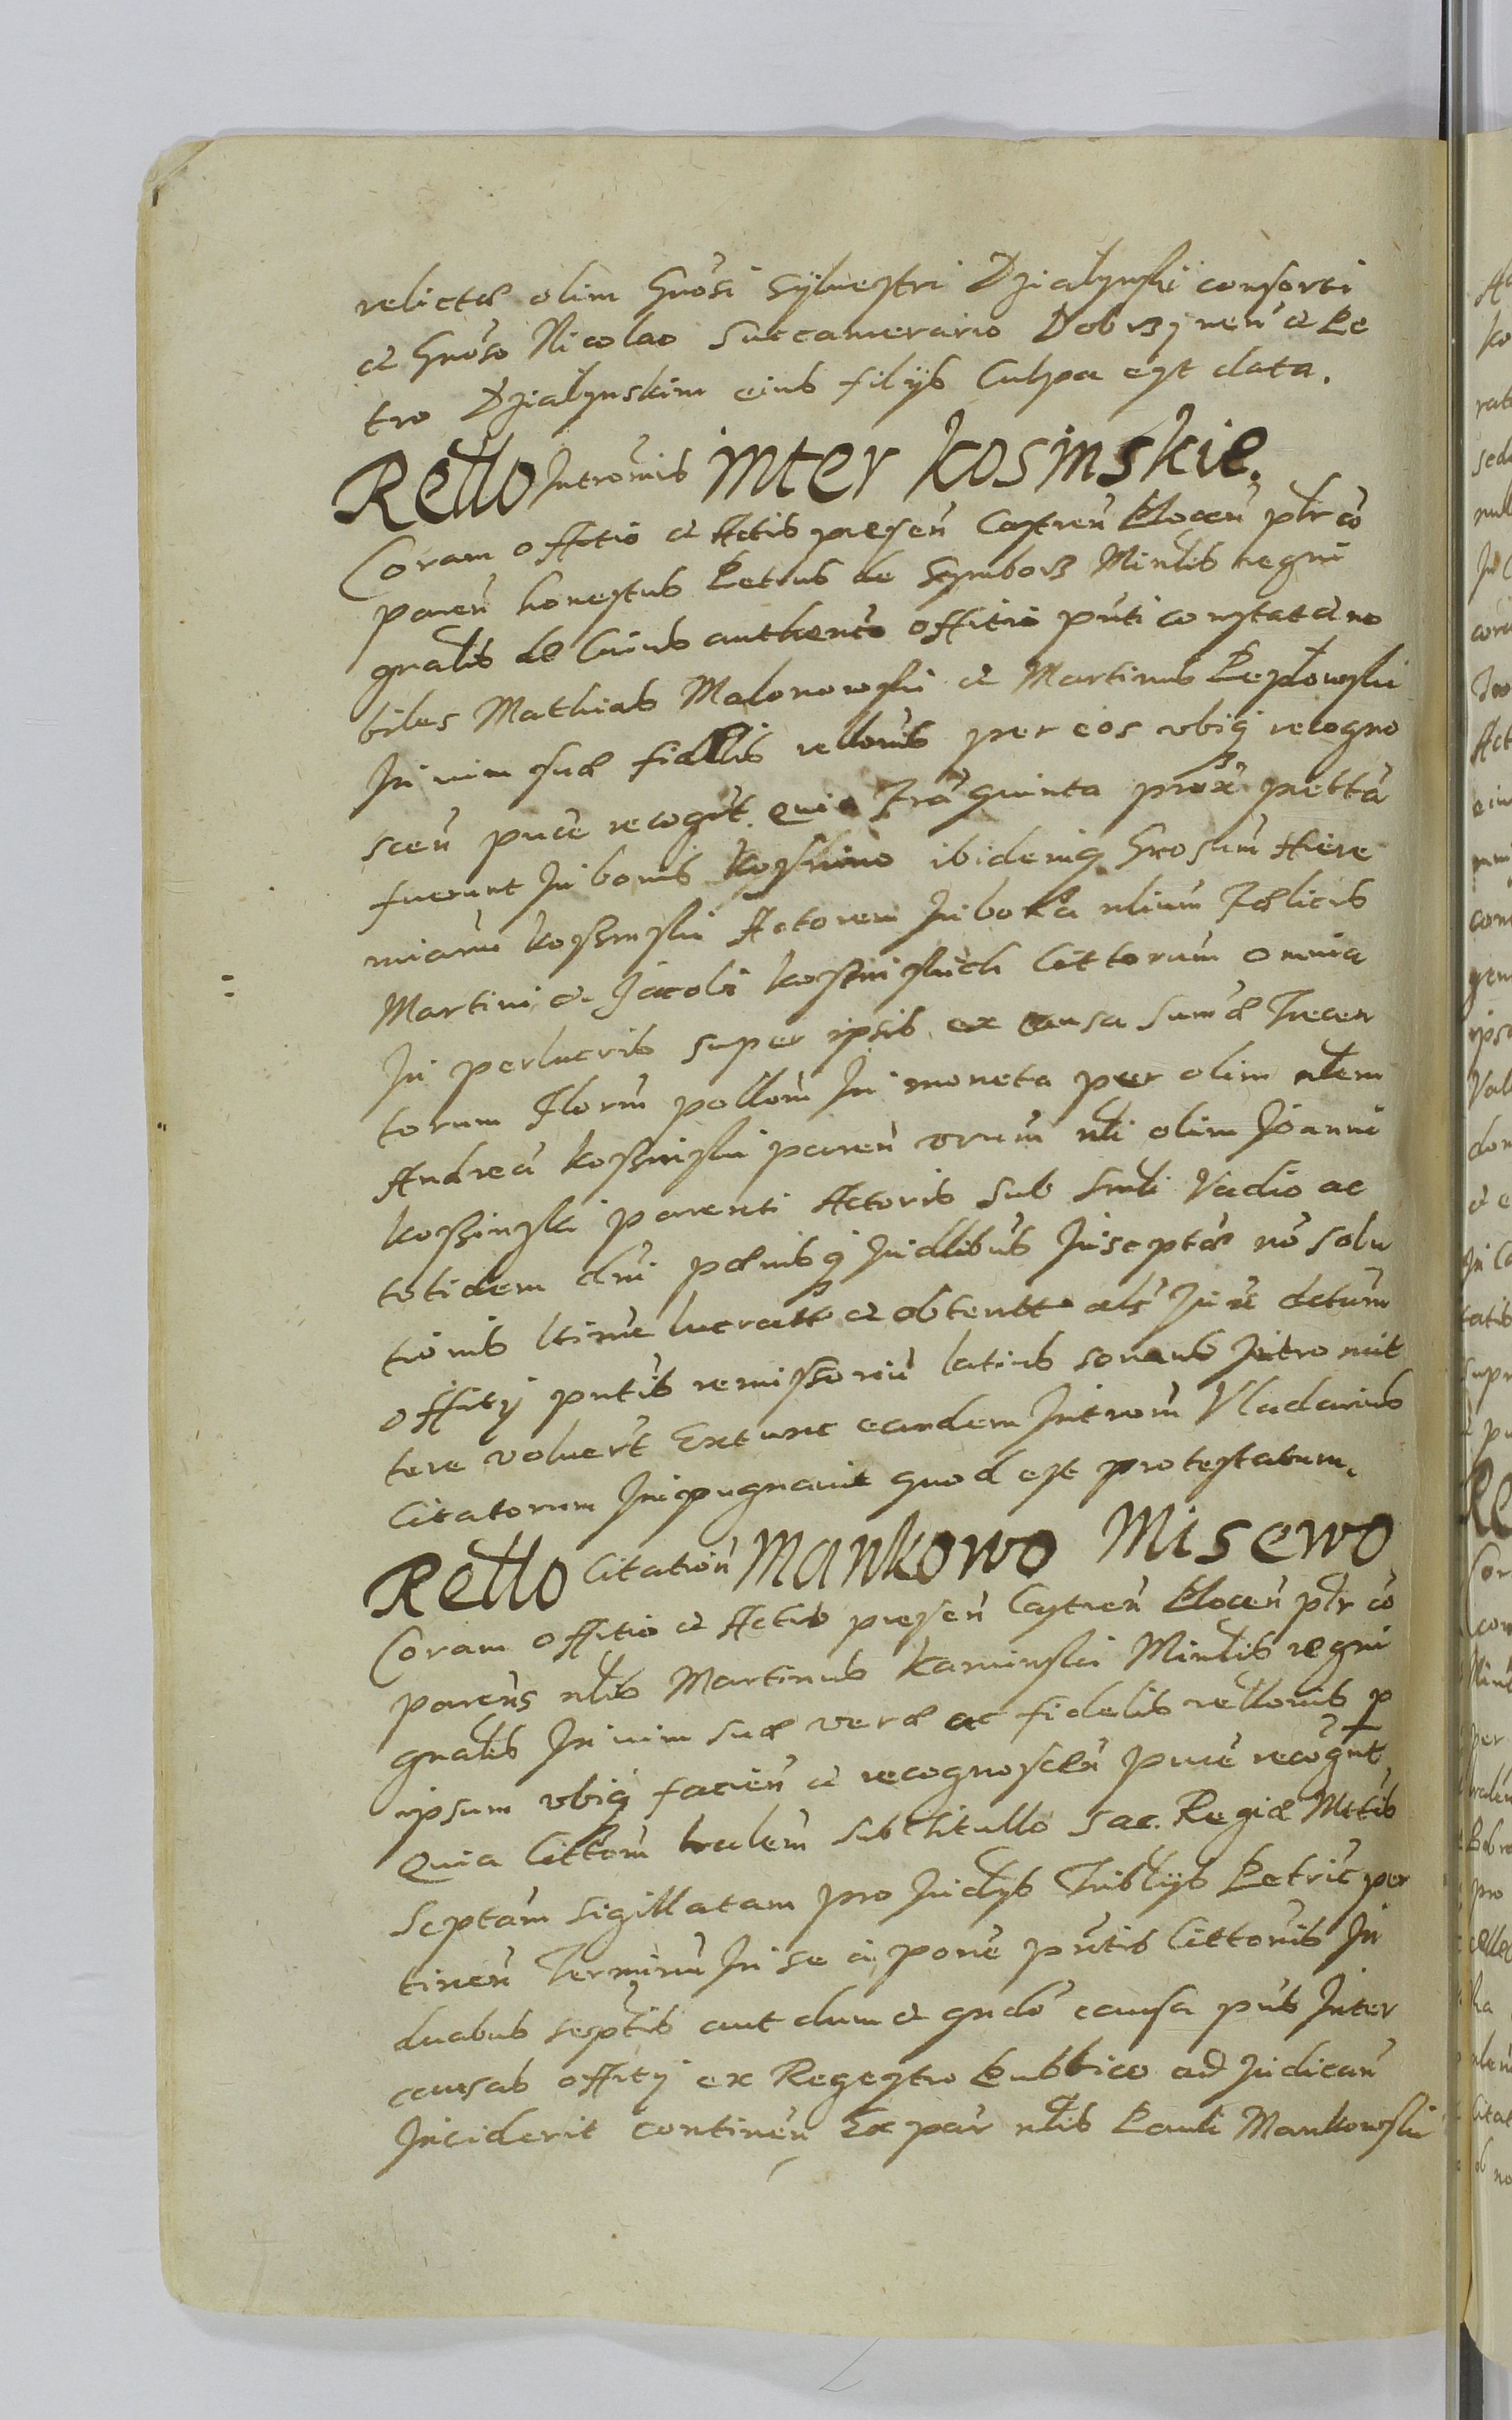 relictæ olim Gnosi Sylvestri Dzialynski consorti
et Gnoso Nicolao Succamerario Dobrzynen et Pe
tro Dzialynskim eius filijs Culpa est data.
Rello Intromis inter Kosinskie.
Coram officio et Actis presen Castren Plocen pltr co
paren honestus Petrus de Szymbors Minlis regni
gnalis de cuius authento officio pnti constat et no
biles Mathias Malonowski et Martinus Peplowski
In vim suæ fidelis rellonis per eos ubiq recogno
scen puce recognt. Quia Fra quinta prox pretta
fuerunt In bonis Kossino ibidemq Gnosum Hiere
miam Kossinski Actorem In bona nlium Fælicis
Martini et Jacobi Kossinskich Cittorum omnia
In perlucris super ipsis ex causa summæ Trecen
torum Floren pollon In moneta per olim nlem
Andrea Kossinski paren orum nli olim Joanni
Kossinski parenti Actoris sub smli Vadio ac
totidem dni pænisq Judlibus Inscptæ no solu
tionis ltime lucratt et obtentt als Jure detum
officij pntis remissoriu latius sonans Intromit
tere voluert Extunc eandem Introm Vladarius
Citatorum Inpugnavit quod est protestatum.
Rello Citation Mankowo Misewo
Coram officio et Actis presen Castren Plocen pltr co
parens nlis Martinus Kaminski Minlis regni
gnalis In vim suæ veræ ac fidelis rellonis p
ipsum ubiq facien et recognoscen puce recognt
Quia Cittom tralem sub titullo Sac. Regiæ Mttis
Scptam sigillatam pro Judys Triblijs Petric per
tinen Terminu In se a pone pntis Cittonis In
duabus septis aut dum et qndo causa pns Inter
causas officij ex Regestro Publico ad Judican
Inciderit continen Ex par nlis Pauli Mankowski